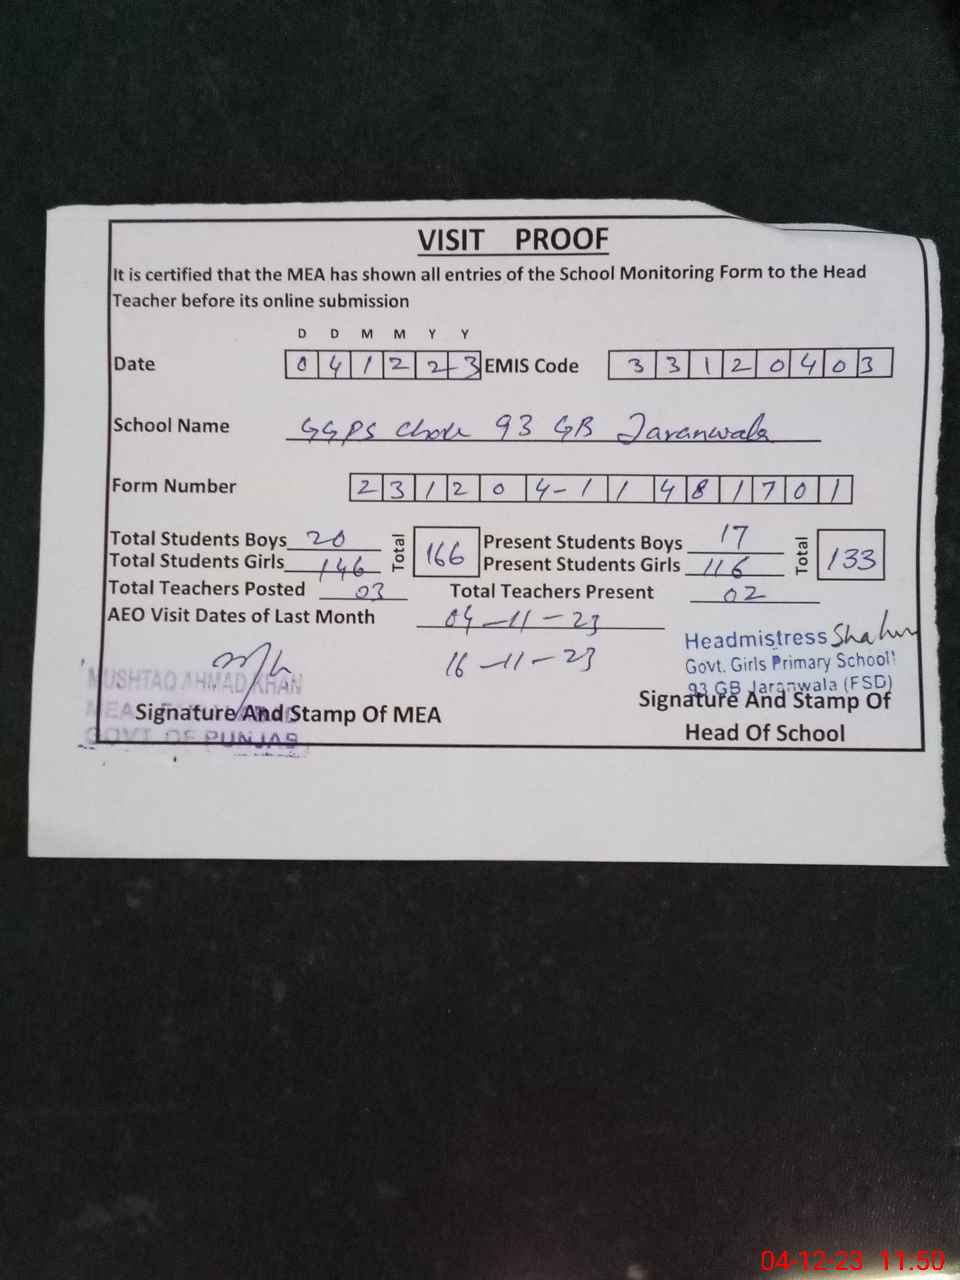 VISIT PROOF
It is certified that the MEA has shown all entries of the School Monitoring Form to the Head
Teacher before its online submission
D D M M Y Y
Date 0 4 1 2 2 3 EMIS Code 3 3 1 2 0 4 0 3
School Name GGPS 93 GB Jaranwala
Form Number 2 3 1 2 0 4 - 1 1 4 8 1 7 0 1
Total Students Boys 20 Total 166 Present Students Boys 17 Total 133
Total Students Girls 146 Present Students Girls 116
Total Teachers Posted 03 Total Teachers Present 02
AEO Visit Dates of Last Month 04-11-23
16-11-23
Headmistress
Govt. Girls Primary School
93 GB Jaranwala (FSD)
MUSHTAQ AHMAD KHAN
MEA
GOVT. OF PUNJAB
Signature And Stamp Of MEA
Signature And Stamp Of
Head Of School
04-12-23 11.50